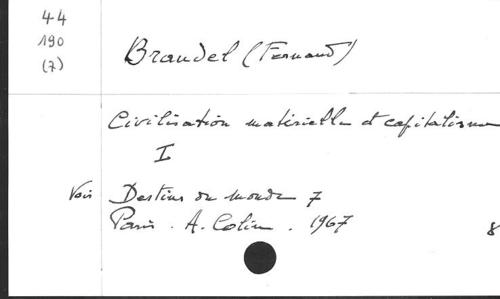 44
190
(7)
Braudel (Fernand)
Civilisation matérielle et capitalisme
I
Voir Destins du monde 7
Paris . A. Colin . 1967
8